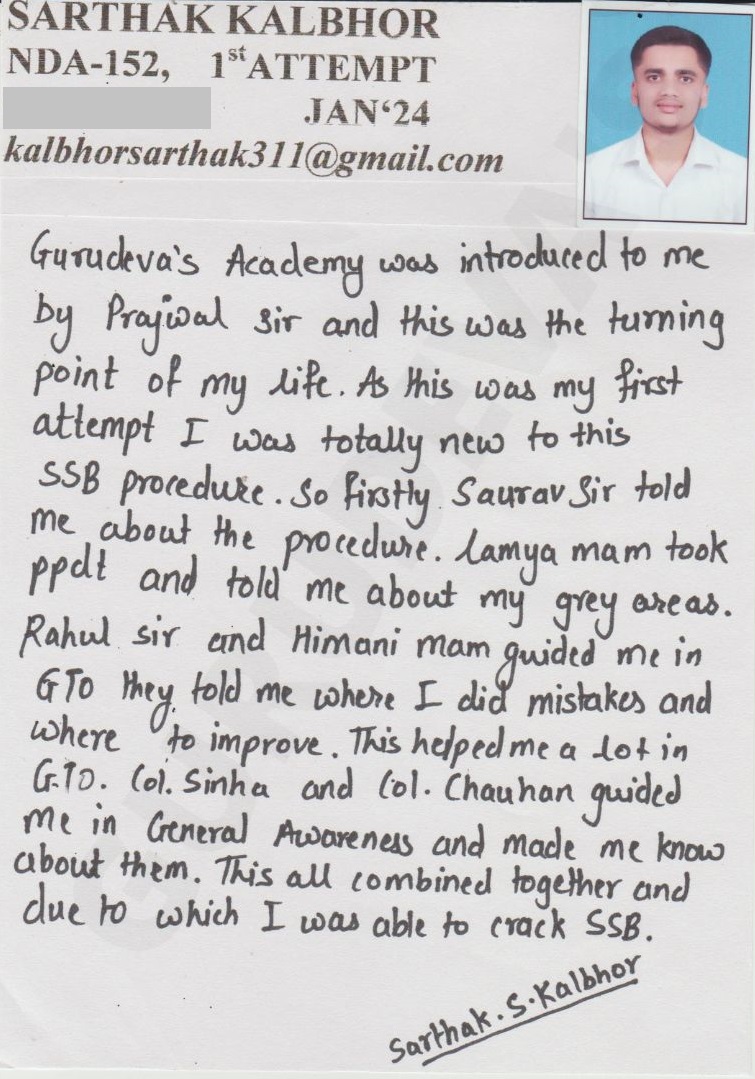 SARTHAK KALBHOR
NDA-152, 1st ATTEMPT
JAN'24
kalbhorsarthak311@gmail.com
Gurudeva's Academy was introduced to me
by Prajwal sir and this was the turning
point of my life. As this was my first
attempt I was totally new to this
SSB procedure. So firstly Saurav Sir told
me about the procedure. Lamya mam took
ppdt and told me about my grey areas.
Rahul sir and Himani mam guided me in
GTO they told me where I did mistakes and
where to improve. This helped me a lot in
G.TO. Col. Sinha and Col. Chauhan guided
me in General Awareness and made me know
about them. This all combined together and
due to which I was able to crack SSB.
Sarthak.S.Kalbhor
GURUDEVA'S